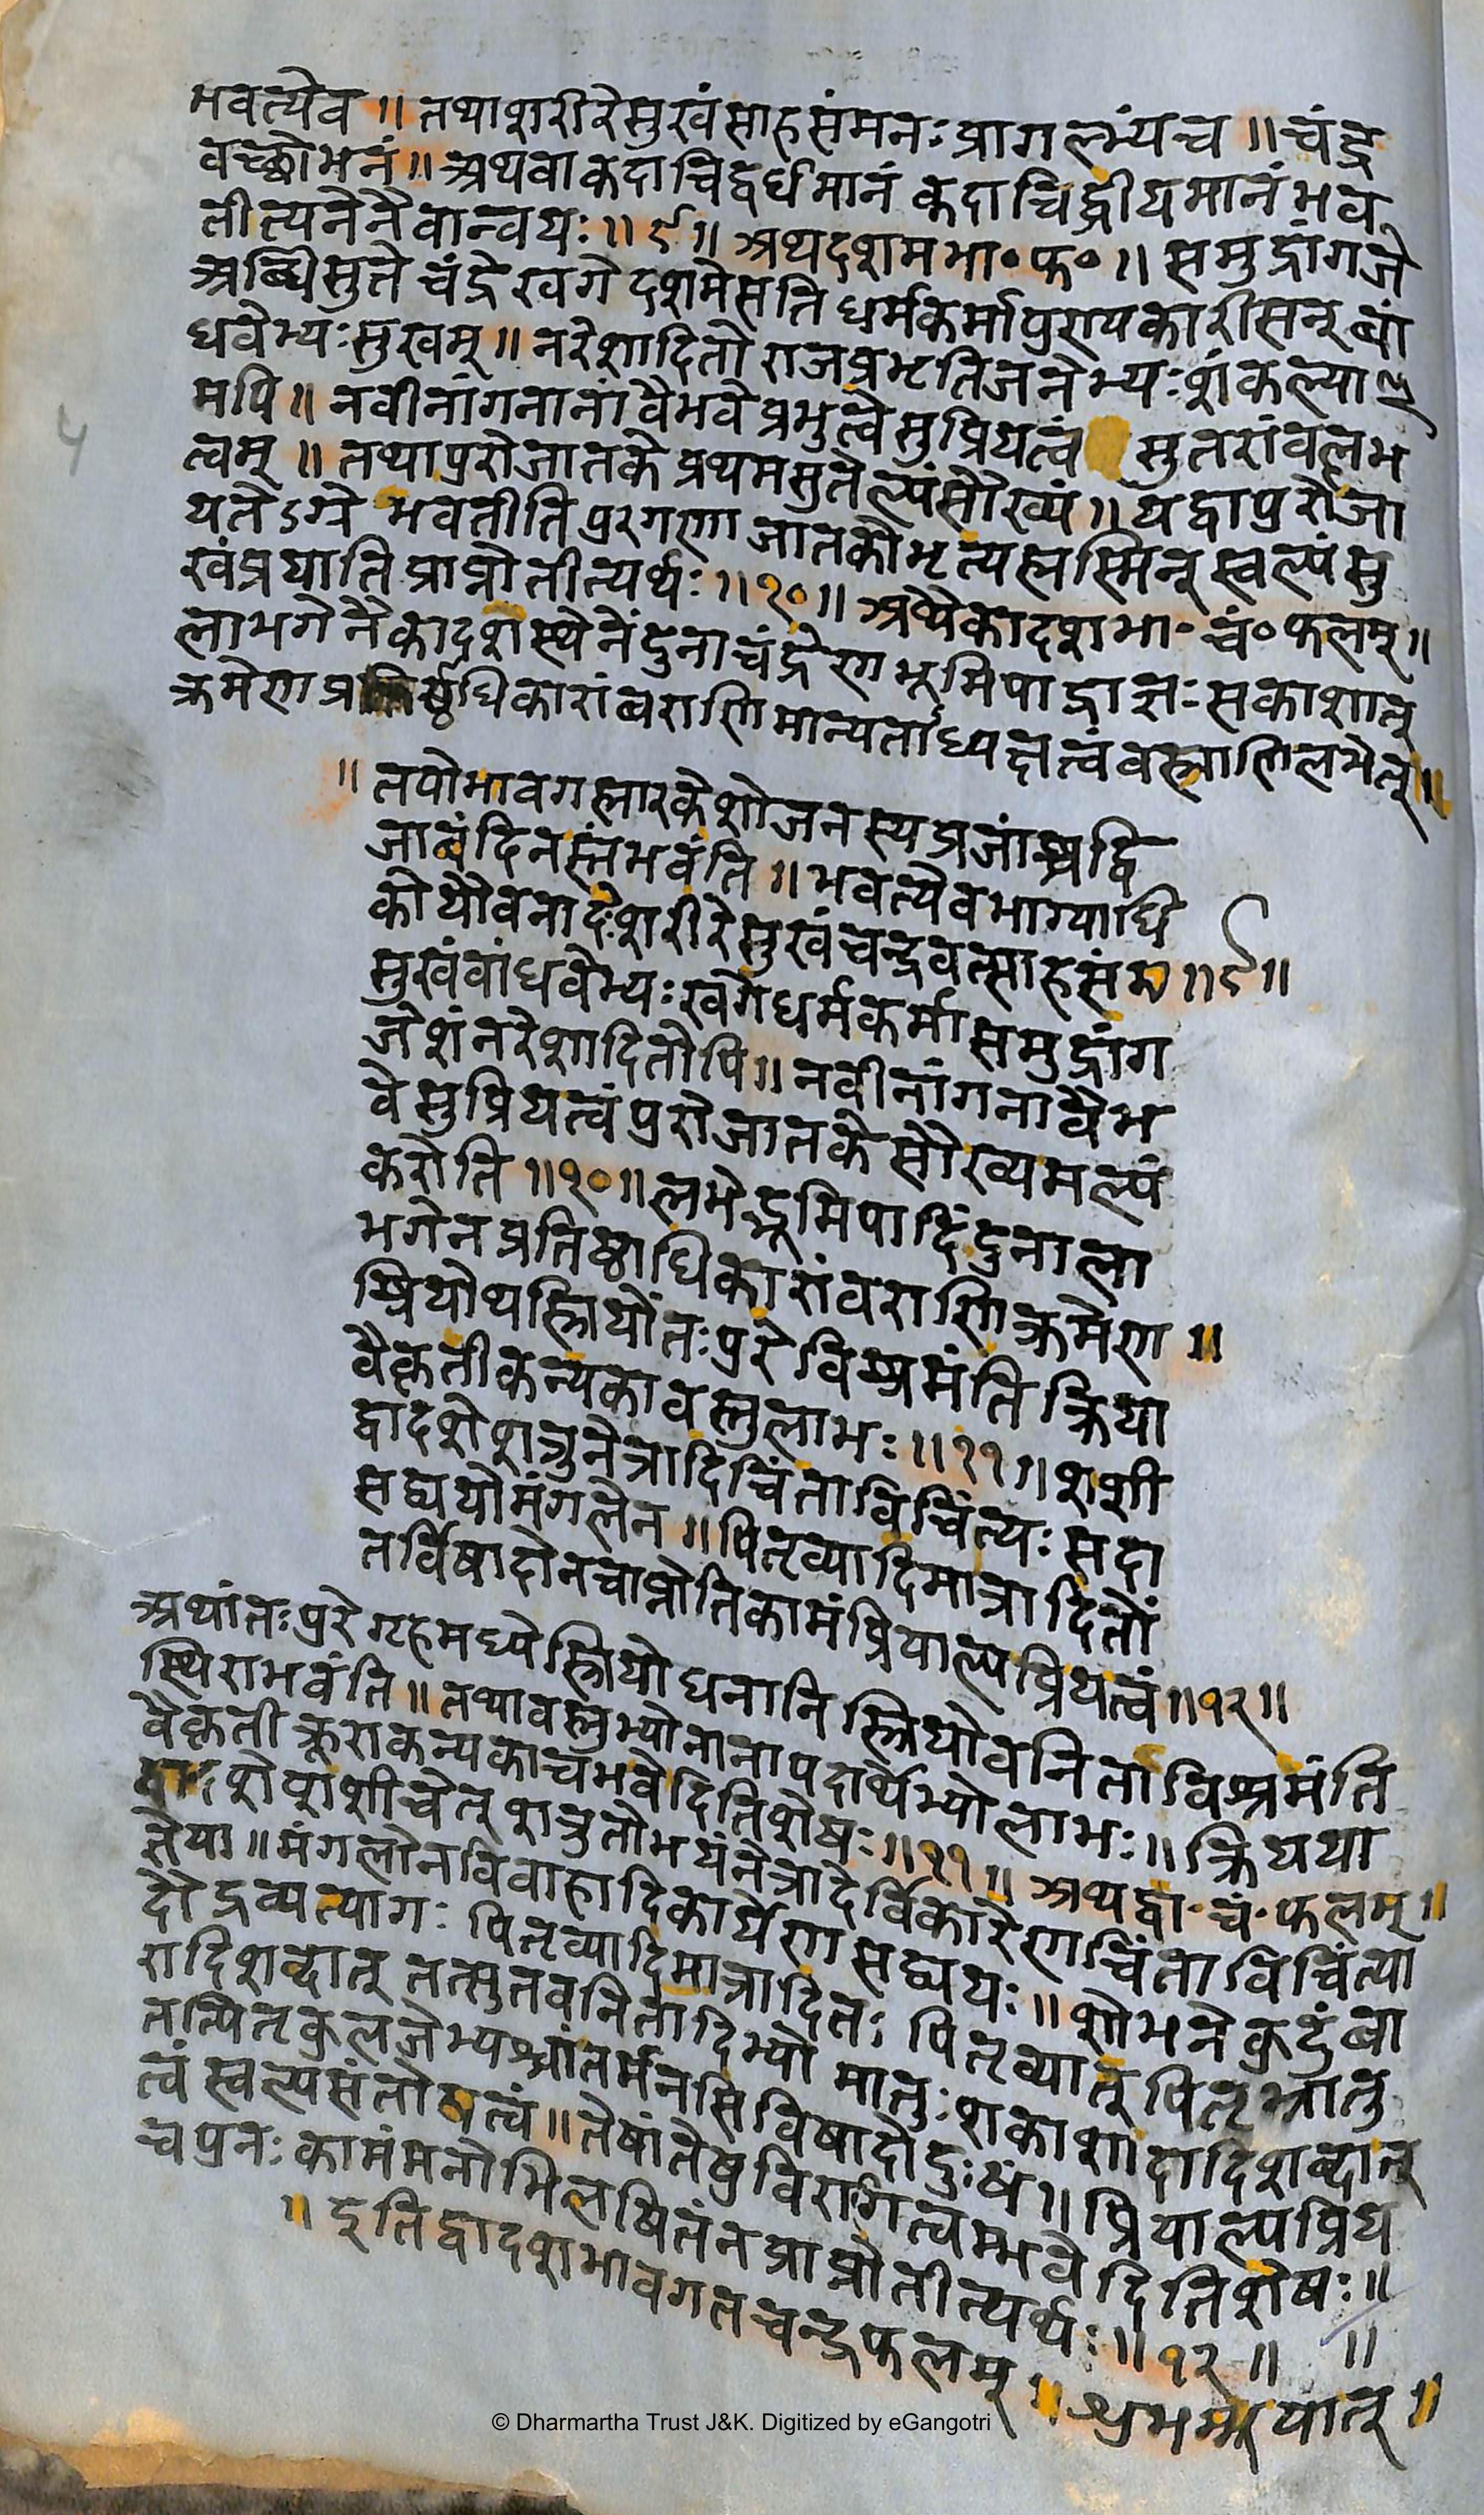 भवत्येव ॥ तथाशरीरेसुखंसाहसंमनःप्रागल्भ्यंच ॥ चंद्रे
वच्छोभनं ॥ अथवाकदाचिद्वर्धमानं कदाचिद्धीयमानंभव
तीत्यनेनैवान्वयः ॥ ९ ॥ अथदशमभा॰फ॰ ॥ समुद्रांगजे
अब्धिसुते चंद्रे खगे दशमेसति धर्मकर्मापुण्यकारीसन् बां
धवेभ्यःसुखम् ॥ नरेशादितो राजप्रभृतिजनेभ्यःशंकल्याण
मपि ॥ नवीनांगनानां वैभवे प्रभुत्वे सुप्रियत्वं सुतरांवल्लभ
त्वम् ॥ तथापुरोजातके प्रथमसुतेल्पंसौख्यं ॥ यद्वापुरोजा
यतेऽग्रे भवतीति पुरगणा जातकोभृत्यस्तस्मिन् स्वल्पंसु
खंप्रयाति प्राप्नोतीत्यर्थः ॥ १० ॥ अथैकादशभा॰ चं॰ फलम् ॥
लाभगेनैकादशस्थेनेंदुनाचंद्रेण भूमिपाद्राज्ञःसकाशात्
क्रमेणप्रतिष्ठाधिकारांबराणिमान्यताध्यक्षत्वंवस्त्राणिलभेत् ॥
॥ तपोभावगस्तारकेशोजनस्यप्रजाश्चद्वि
जाबंदिनस्तंभवंति ॥ भवत्येवभाग्याधि
कोयौवनादेःशरीरेसुखंचन्द्रवत्साहसंच ॥ ९ ॥
सुखंवांधवेभ्यःखगेधर्मकर्मासमुद्रांग
जेशंनरेशादितोपि ॥ नवीनांगनावैभ
वे सुप्रियत्वंपुरोजातके सौख्यमल्पं
करोति ॥ १० ॥ लभेद्भूमिपादिंदुनाला
भगेनप्रतिष्ठाधिकारांवराणिक्रमेण ॥
श्रियोथस्त्रियोंतःपुरे विश्रमंति क्रिया
वैकृतीकन्यकावस्तुलाभः ॥ ११ ॥ शशी
द्वादशेशत्रुनेत्रादिचिंताविचिंत्यः सदा
सद्व्ययोमंगलेन ॥ पितृव्यादिमात्रादितों
तर्विषादोनचाप्नोतिकामंप्रियाल्पप्रियत्वं ॥ १२ ॥
अथांतःपुरे गृहमध्येस्त्रियोधनानि स्त्रियोवनिताविश्रमंति
स्थिराभवंति ॥ तथावस्तुभ्योनानापदार्थेभ्योलाभः ॥ क्रियया
वैकृती क्रूराकन्यकाचभवेदितिशेषः ॥ ११ ॥ अथद्वा॰चं॰फलम् ॥
द्वादशे शशीचेत् शत्रुतोभयंनेत्रादेर्विकारेणचिंताविचिंत्या
ज्ञेया ॥ मंगलेनविवाहादिकार्येणसद्व्ययः ॥ शोभनेकुटुंबा
दौ द्रव्यत्यागः पितृव्यादिमात्रादितः पितृव्यात् पितृभ्रातु
रादिशब्दात् तत्सुतवनितादिभ्यो मातुःशकाशादादिशब्दात्
तत्पितृकुलजेभ्यश्चांतर्मनसिविषादोदुःखं ॥ प्रियाल्पप्रिय
त्वं स्वल्पसंतोषत्वं ॥ तेषांतेषुविरागित्वम्भवेदितिशेषः ॥
चपुनःकामंमनोभिलषितंनप्राप्नोतीत्यर्थः ॥ १२ ॥ ॥
॥ इतिद्वादशभावगतचन्द्रफलम् ॥ शुभम्भूयात् ॥
५
© Dharmartha Trust J&K. Digitized by eGangotri